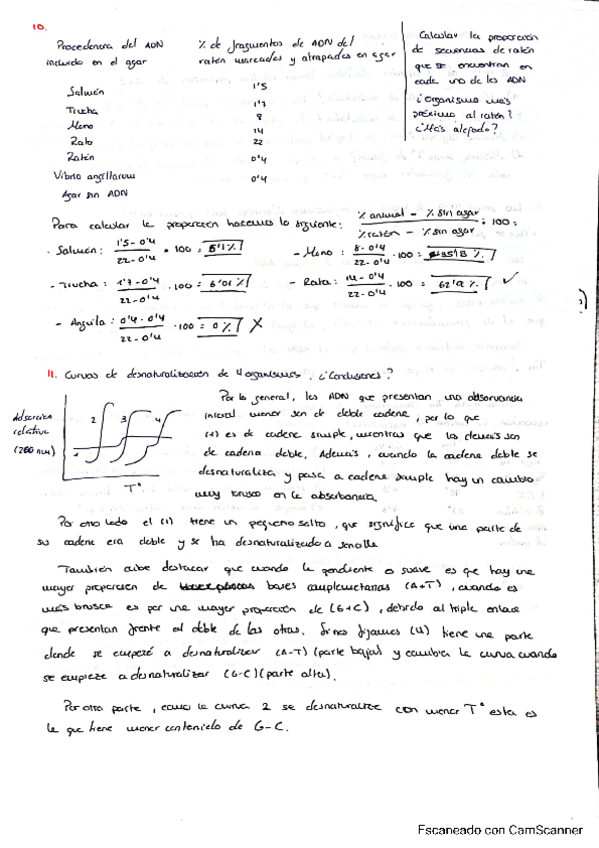 10.
Procedencia del ADN
incluido en el agar
% de fragmentos de ADN del
ratón marcados y atrapados en agar
Calcular la proporción
de secuencias de ratón
que se encuentran en
cada uno de los ADN
¿Organismo más
próximo al ratón?
¿Más alejado?
Salmón 1'5
Trucha 1'7
Mono 8
Rata 14
Ratón 22
Vibrio angillarum 0'4
Agar sin ADN 0'4
Para calcular la proporción hacemos lo siguiente: % animal - % sin agar / % ratón - % sin agar · 100:
- Salmón: 1'5-0'4 / 22-0'4 · 100 = 5'1 %
- Mono: 8-0'4 / 22-0'4 · 100 = 35'18 %
- Trucha: 1'7-0'4 / 22-0'4 · 100 = 6'01 %
- Rata: 14-0'4 / 22-0'4 · 100 = 62'9 % ✓
- Anguila: 0'4-0'4 / 22-0'4 · 100 = 0 % X
11. Curvas de desnaturalización de 4 organismos. ¿Conclusiones?
Adsorción
relativa
(260 nm)
2 3 4
T°
Por lo general, los ADN que presentan una absorvancia
inicial menor son de doble cadena, por lo que
(1) es de cadena simple, mientras que los demás son
de cadena doble. Además, cuando la cadena doble se
desnaturaliza y pasa a cadena simple hay un cambio
muy brusco en la absorbancia.
Por otro lado el (1) tiene un pequeño salto, que significa que una parte de
su cadena era doble y se ha desnaturalizado a sencilla
También cabe destacar que cuando la pendiente es suave es que hay una
mayor proporción de bases complementarias (A+T), cuando es
más brusca es por una mayor proporción de (G+C), debido al triple enlace
que presentan frente al doble de las otras. Si nos fijamos (4) tiene una parte
donde se empezó a desnaturalizar (A-T) (parte baja) y cambia la curva cuando
se empieza a desnaturalizar (G-C) (parte alta).
Por otra parte, como la curva 2 se desnaturaliza con menor T° esta es
la que tiene menor contenido de G-C.
Escaneado con CamScanner